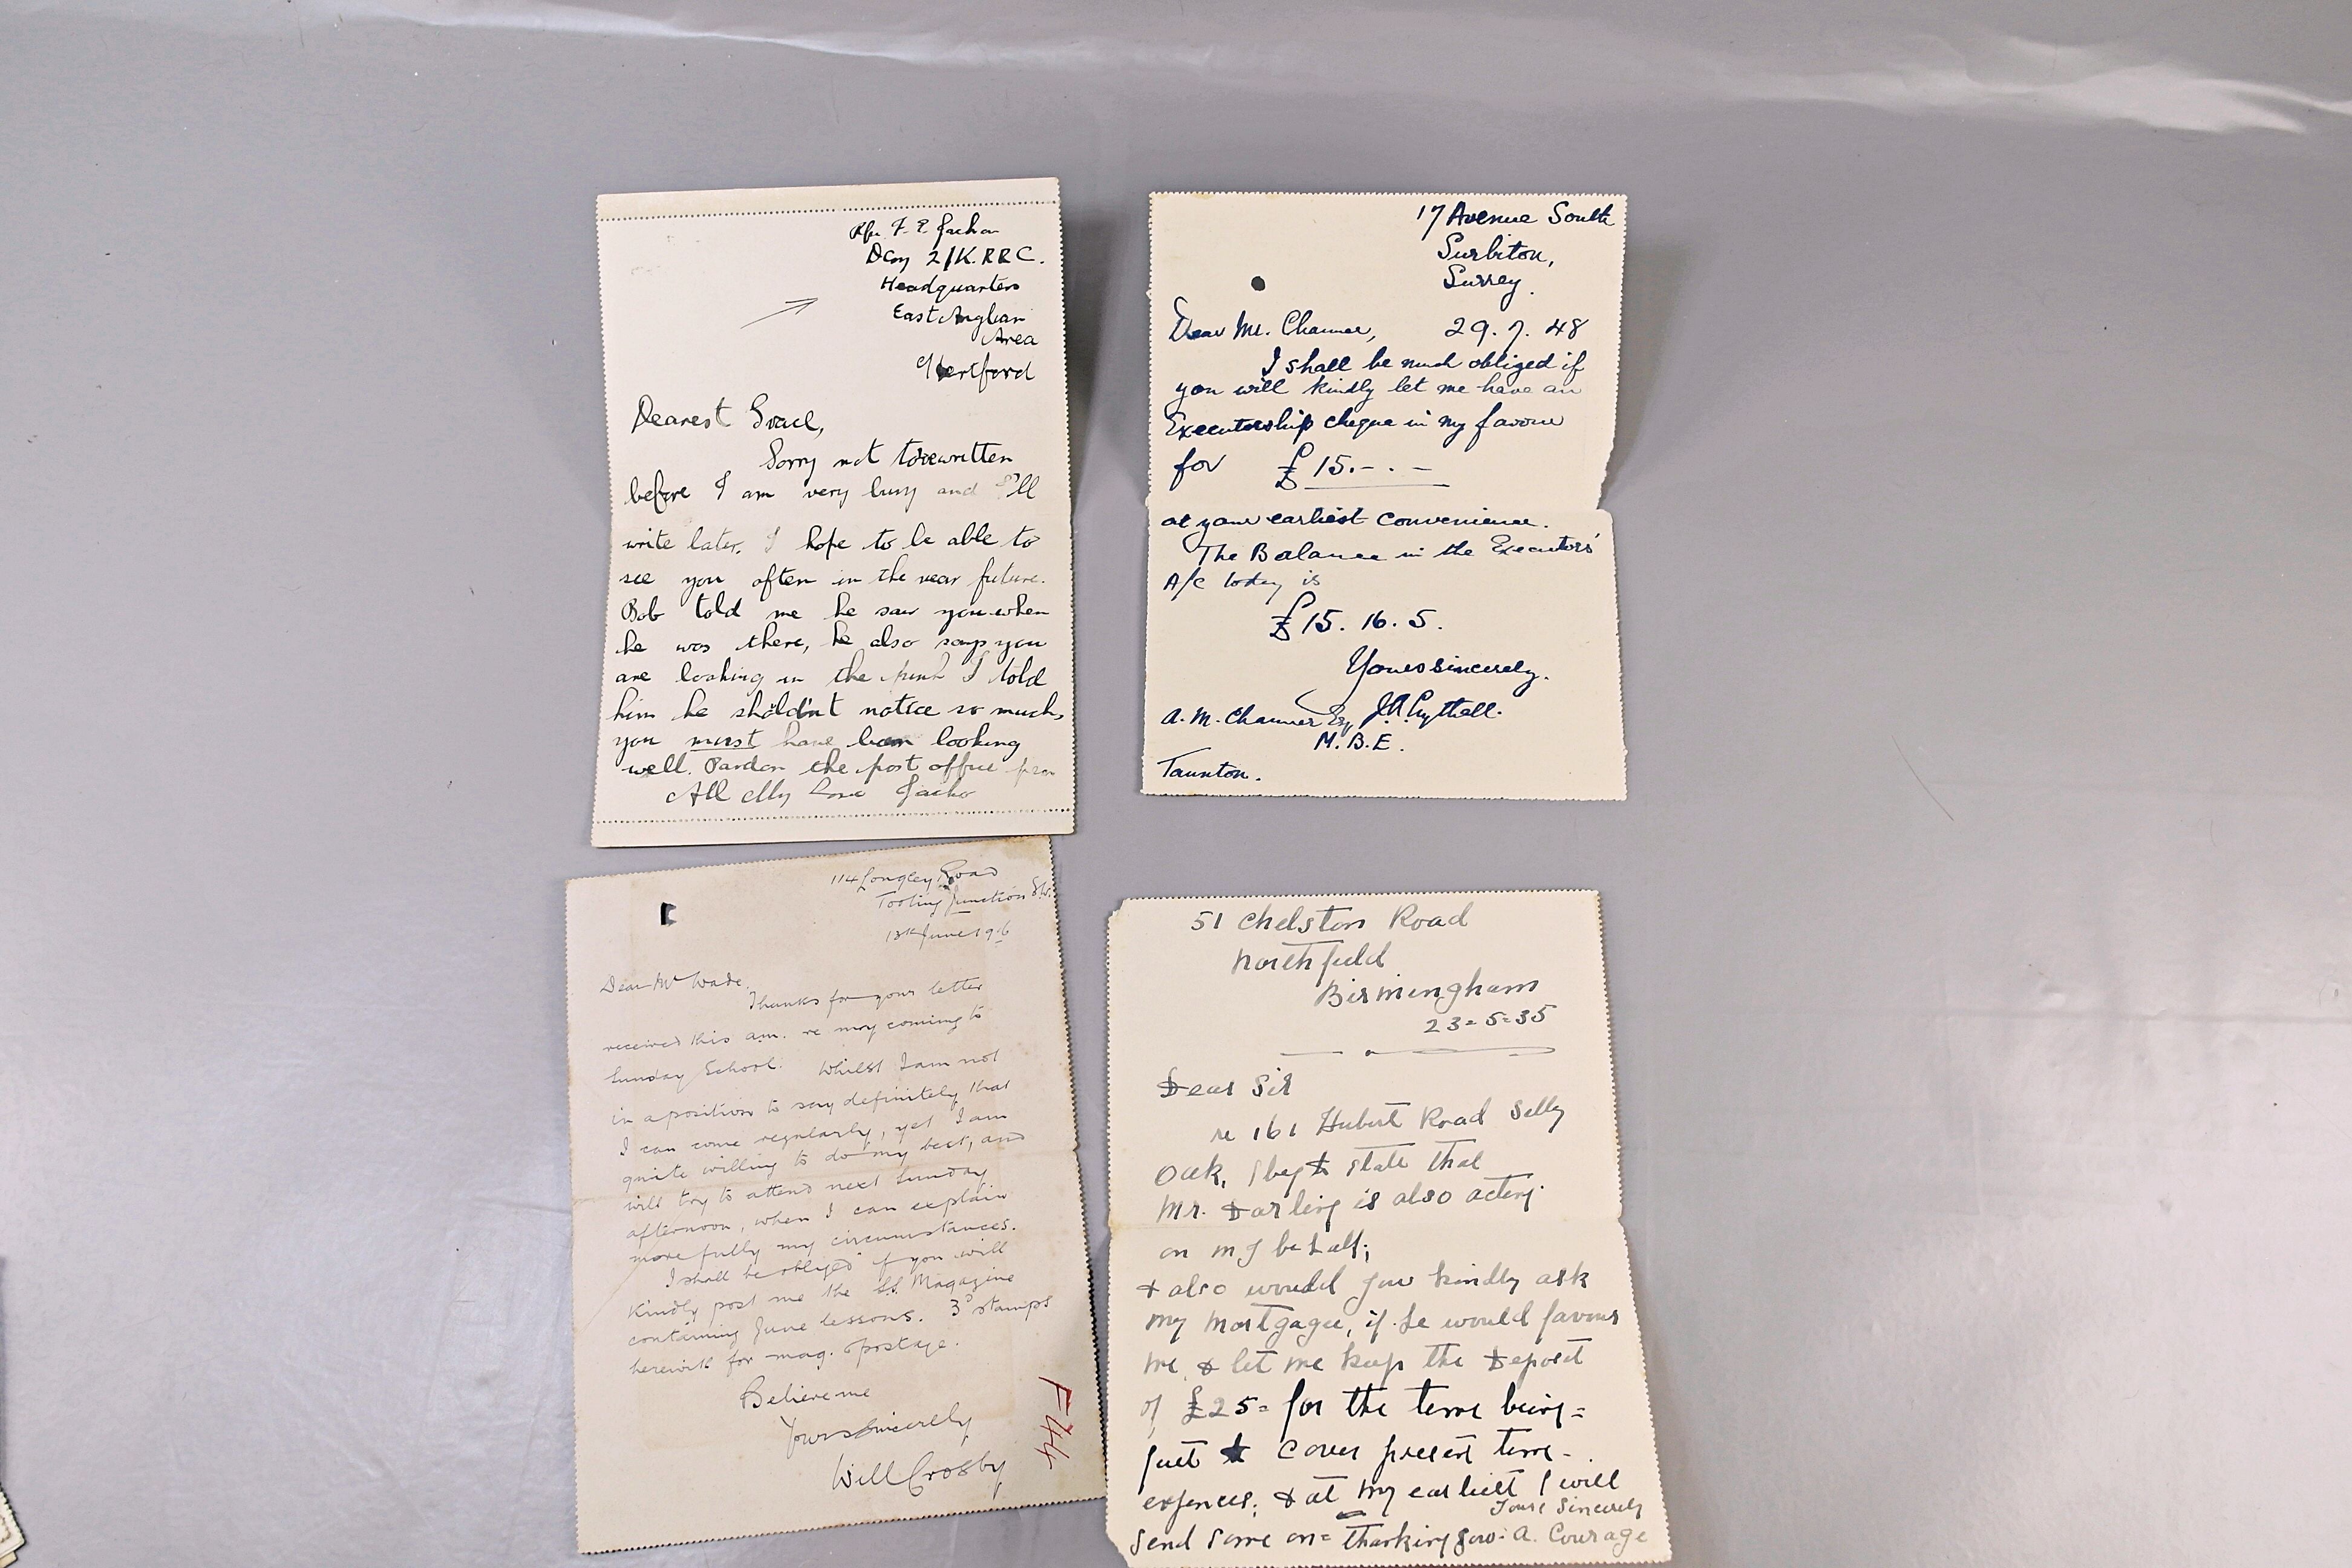 F. E. Jacko
D Coy 2/K.RRC.
Headquarters
East Anglian
Area
Hertford
Dearest Grace,
Sorry not to written
before I am very busy and I'll
write later. I hope to be able to
see you often in the near future.
Bob told me he saw you when
he was there, he also says you
are looking in the pink I told
him he shouldn't notice so much,
you must have been looking
well. Pardon the post office pen
All My Love Jacko
17 Avenue South
Surbiton,
Surrey.
Dear Mr. Channer, 29. 7. 48
I shall be much obliged if
you will kindly let me have an
Executorship cheque in my favour
for £15. - . -
at your earliest convenience.
The Balance in the Executors'
A/C today is
£15. 16. 5.
Yours sincerely.
A. M. Channer Esq J.A. Lythell.
M.B.E.
Taunton.
114 Longley Road
Tooting Junction S.W.
13th June 19
Dear Mr Wade.
Thanks for your letter
received this a.m. re my coming to
Sunday School. Whilst I am not
in a position to say definitely that
I can come regularly, yet I am
quite willing to do my best, and
will try to attend next Sunday
afternoon, when I can explain
more fully my circumstances.
I shall be obliged if you will
kindly post me the S.S. Magazine
containing June lessons. 3d stamps
herewith for mag. & postage.
Believe me
Yours Sincerely
Will Crosby
F44
51 Chelston Road
Northfield
Birmingham
23=5=35
Dear Sir
re 161 Hubert Road Selly
Oak, I beg to state that
Mr. Darling is also acting
on my behalf;
& also would you kindly ask
my Mortgagee, if he would favour
me, & let me keep the Deposit
of £25= for the time being=
just to cover present time-
expences, & at my earliest I will
send same on= thanking you-
Yours Sincerely
A. Courage